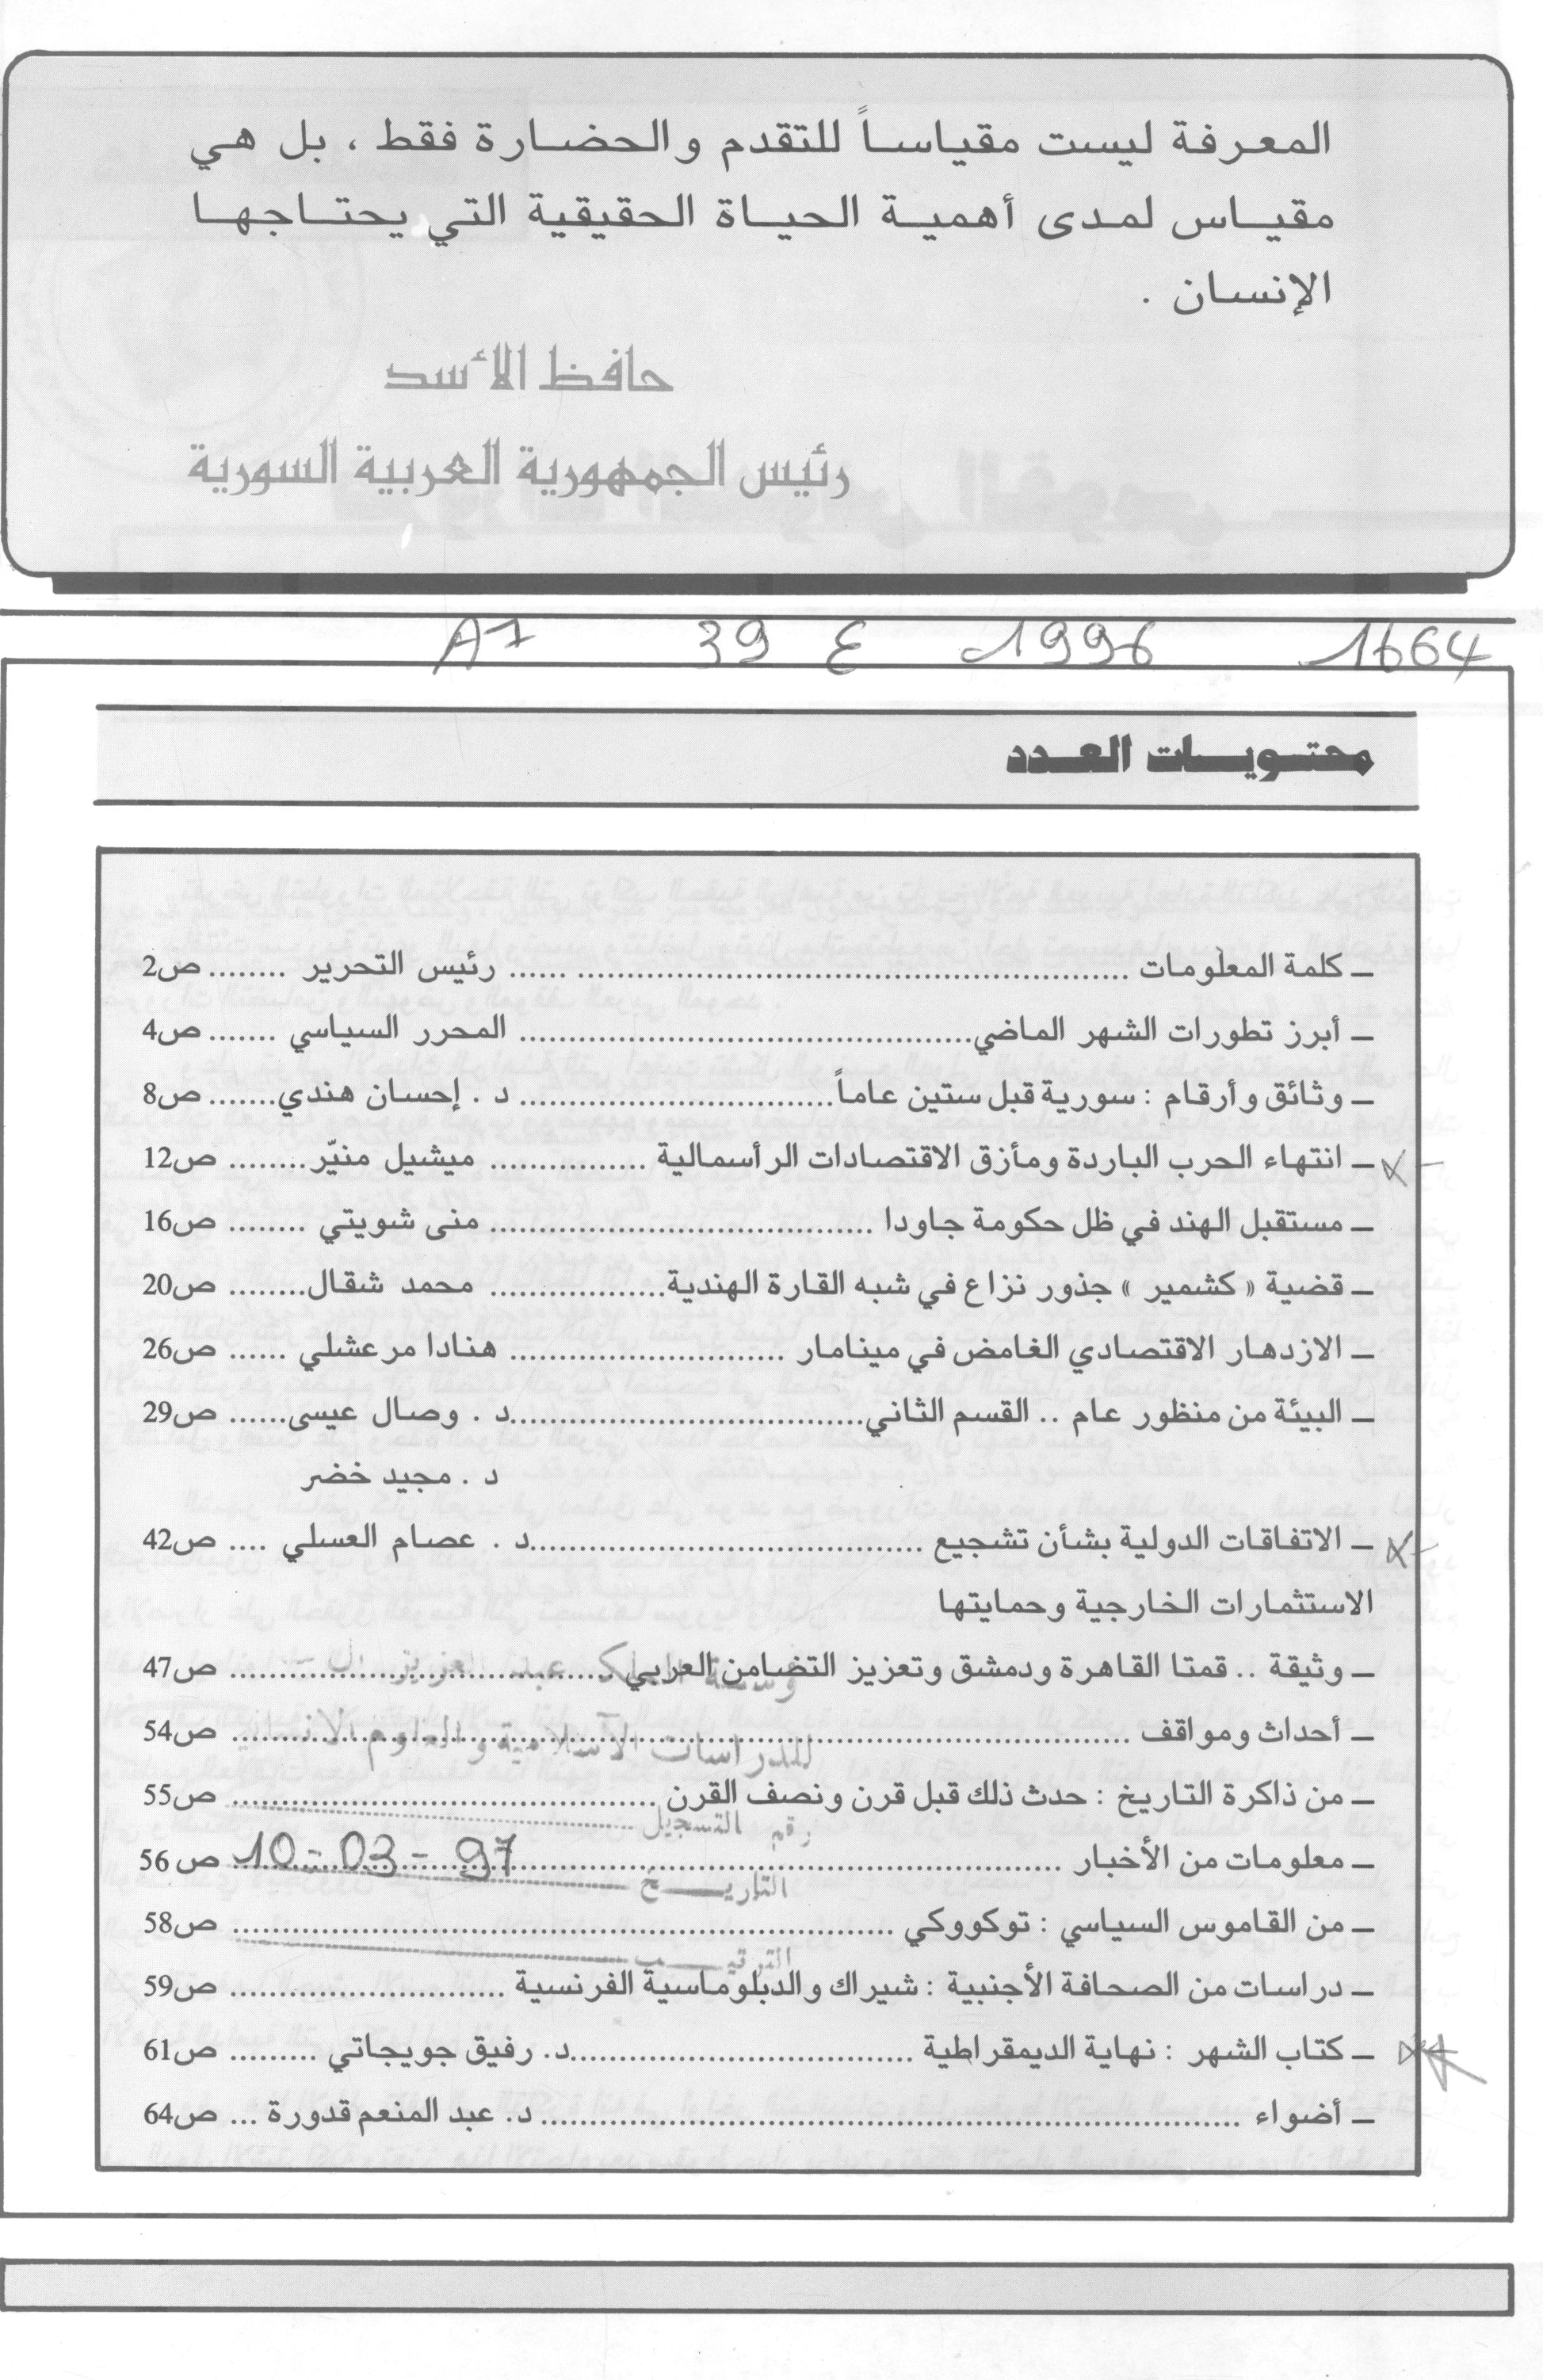 المعرفة ليست مقياساً للتقدم والحضارة فقط ، بل هي
مقياس لمدى أهمية الحياة الحقيقية التي يحتاجها
الإنسان .
حافظ الأسد
رئيس الجمهورية العربية السورية
A7 39 ع 1996 1664
محتويات العدد
ـ كلمة المعلومات ...... رئيس التحرير ........ ص2
ـ أبرز تطورات الشهر الماضي...... المحرر السياسي ....... ص4
ـ وثائق وأرقام : سورية قبل ستين عاماً...... د . إحسان هندي....... ص8
ـ انتهاء الحرب الباردة ومأزق الاقتصادات الرأسمالية ...... ميشيل منيّر........ ص12
ـ مستقبل الهند في ظل حكومة جاودا ...... منى شويتي ........ ص16
ـ قضية « كشمير » جذور نزاع في شبه القارة الهندية...... محمد شقال........ ص20
ـ الازدهار الاقتصادي الغامض في مينامار ...... هنادا مرعشلي ...... ص26
ـ البيئة من منظور عام .. القسم الثاني......د . وصال عيسى...... ص29
د . مجيد خضر
ـ الاتفاقات الدولية بشأن تشجيع ......د . عصام العسلي .... ص42
الاستثمارات الخارجية وحمايتها
ـ وثيقة .. قمتا القاهرة ودمشق وتعزيز التضامن العربي ...... ص47
عبد العزيز
ـ أحداث ومواقف ...... ص54
للدراسات الاسلامية والعلوم الانسانية
ـ من ذاكرة التاريخ : حدث ذلك قبل قرن ونصف القرن ...... ص55
رقم التسجيل
ـ معلومات من الأخبار ...... ص 56
التاريخ 10-03-97
ـ من القاموس السياسي : توكووكي ...... ص58
الترتيب
ـ دراسات من الصحافة الأجنبية : شيراك والدبلوماسية الفرنسية ...... ص59
ـ كتاب الشهر : نهاية الديمقراطية ......د. رفيق جويجاتي ......... ص61
ـ أضواء ...... د. عبد المنعم قدورة ... ص64